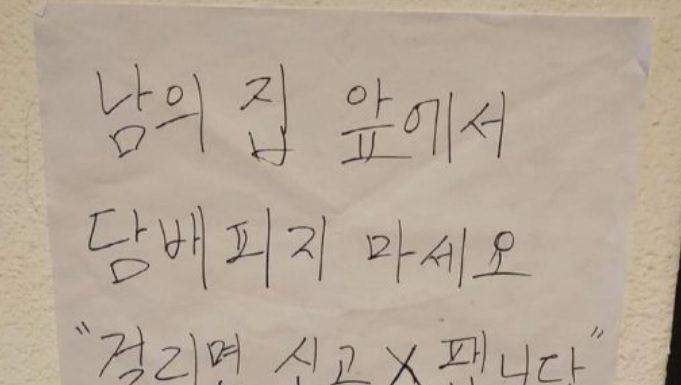 남의 집 앞에서
담배피지 마세요
"걸리면 신고 X 팹니다"